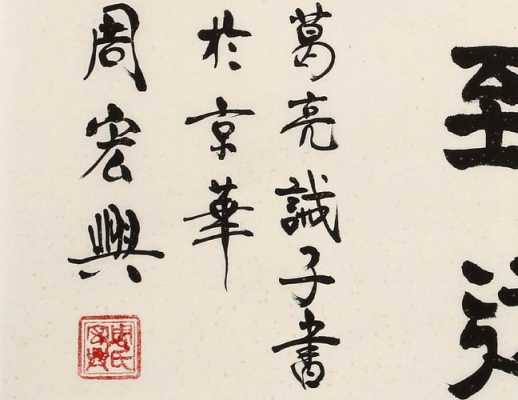 至
葛亮誡子書
於京華
周宏興
周氏宏興